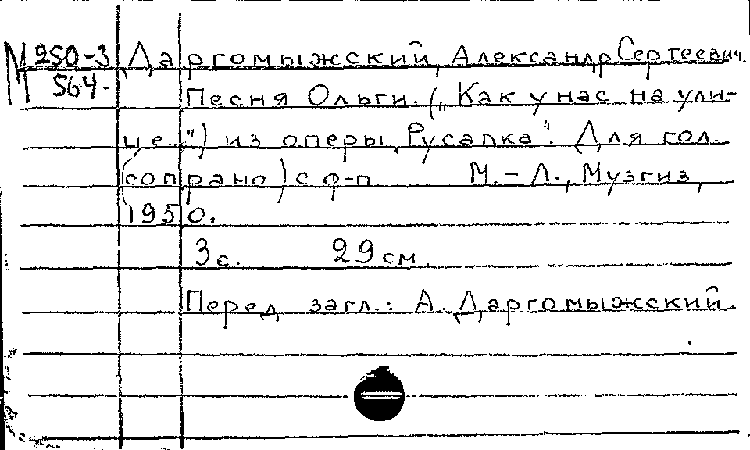 М 250-3 Даргомыжский, Александр Сергеевич.
564. Песня Ольги. („Как у нас на ули-
це") из оперы „Русалка". Для гол.
(сопрано) с ф-п. М.-Л., Музгиз,
1950.
3 с. 29 см.
Перед загл.: А. Даргомыжский.